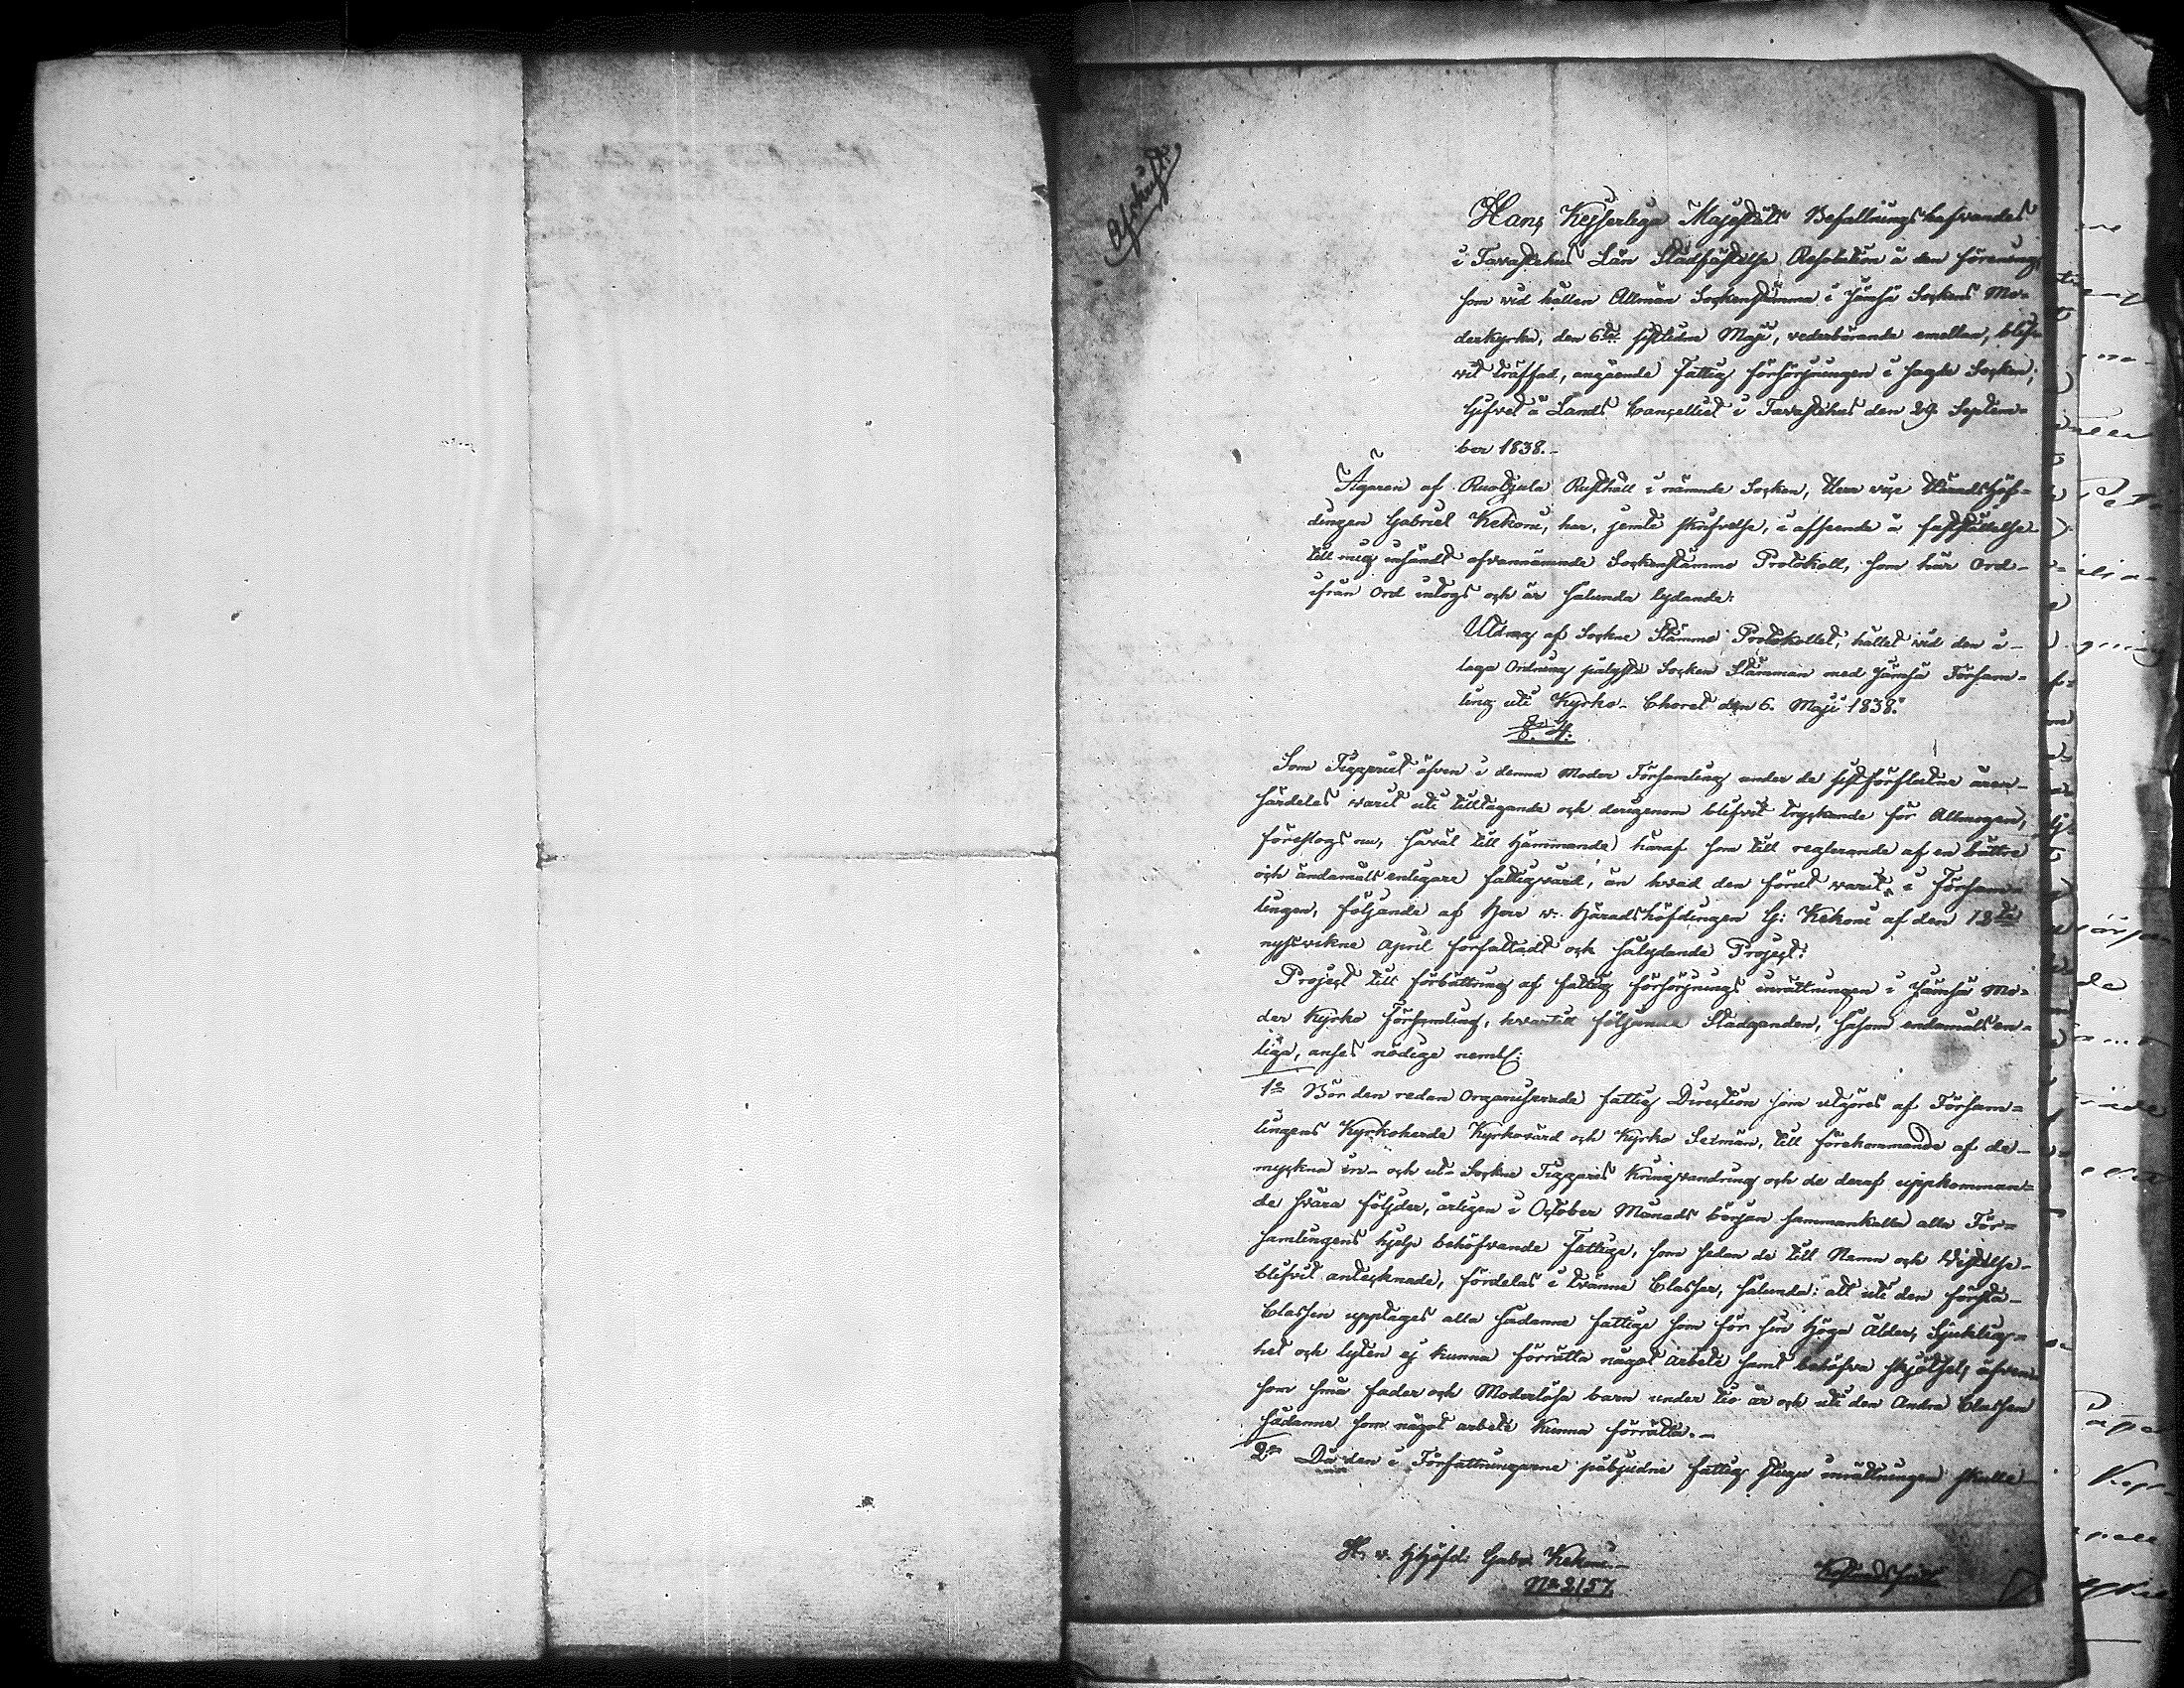 Afskrift.
Hans Kejserliga Majestäts Befallningshafvandes
i Tavastehus Län Stadfästelse Resolution å den förening,
som vid hållen Allmän Sockenstämma i Jämsä Sockens Mo-
derkyrka, den 6te sistledne Maji, vederbörande emellan, blif-
vit träffad, angående fattig försörjningen i sagde Socken;
Gifvet å Lands Cancelliet i Tavastehus den 29 Septem-
ber 1838.-
Ägaren af Ruotsula Rusthåll i nämnde Socken, Herr vice Häradshöf-
dingen Gabriel Kekoni, har, jemte skrifvelse, i afseende å fastställelse
till mig insändt ofvannämnde Sockenstämmo Protokoll, som här Ord-
ifrån Ord intogs och är sålunda lydande:
Utdrag af Sockne Stämmo Protokollet, hållet vid den i-
laga Ordning pålyste Socken Stämman med Jämsä Försam-
ling uti Kyrko-Choret den 6. Maji 1838.
§. 4.
Som Tiggeriet äfven i denna Moder Församling under de sistförflutne åren-
särdeles varit uti tilltagande och derigenom blifvit tryckande för Allmogen,
föreslogs nu, såväl till hämmande häraf som till reglerande af en bättre
och ändamåls enligare fattigvård, än hvad den förut varit, i Försam-
lingen, följande af Herr v. Häradshöfdingen G: Kekoni af den 12te
nystvikne April författadt och sålydande Project:
Project till förbättring af fattig försörjnings inrättningen i Jämsä Mo-
der Kyrko Församling, hvartill följande Stadganden, såsom endamåls en-
liga, anses nödige neml:
1o Bör den redan Organiserade fattig Direction som utgöres af Försam-
lingens Kyrkoherde Kyrkovärd och Kyrko Sexmän, till förekommande af de-
myckna in- och ut- Sockne Tiggeris Kringvandring och de deraf uppkomman-
de svåra följder, årligen i October Månads början sammankalla alla För-
samlingens hjelp behöfvande Fattige, som sedan de till Namn och Vistelse-
blifvit antecknade, fördelas i tvänne Classer, sålunda: att uti den första-
Classen upptages alla sådanna fattige som för sin höga Ålder, Sjuklig-
het och lyten ej kunna förrätta något arbete samt behöfva skjötsel, äfven
som små fader och Moderlösa barn under tio år och uti den Andra Classen
sådanne som något arbete kunna förrätta.-
2o Då den i Författningarne påbjudne fattig stugu inrättningen skulle-
H. v. Hhöfd: Gabr. Kekoni.-
No 2157.